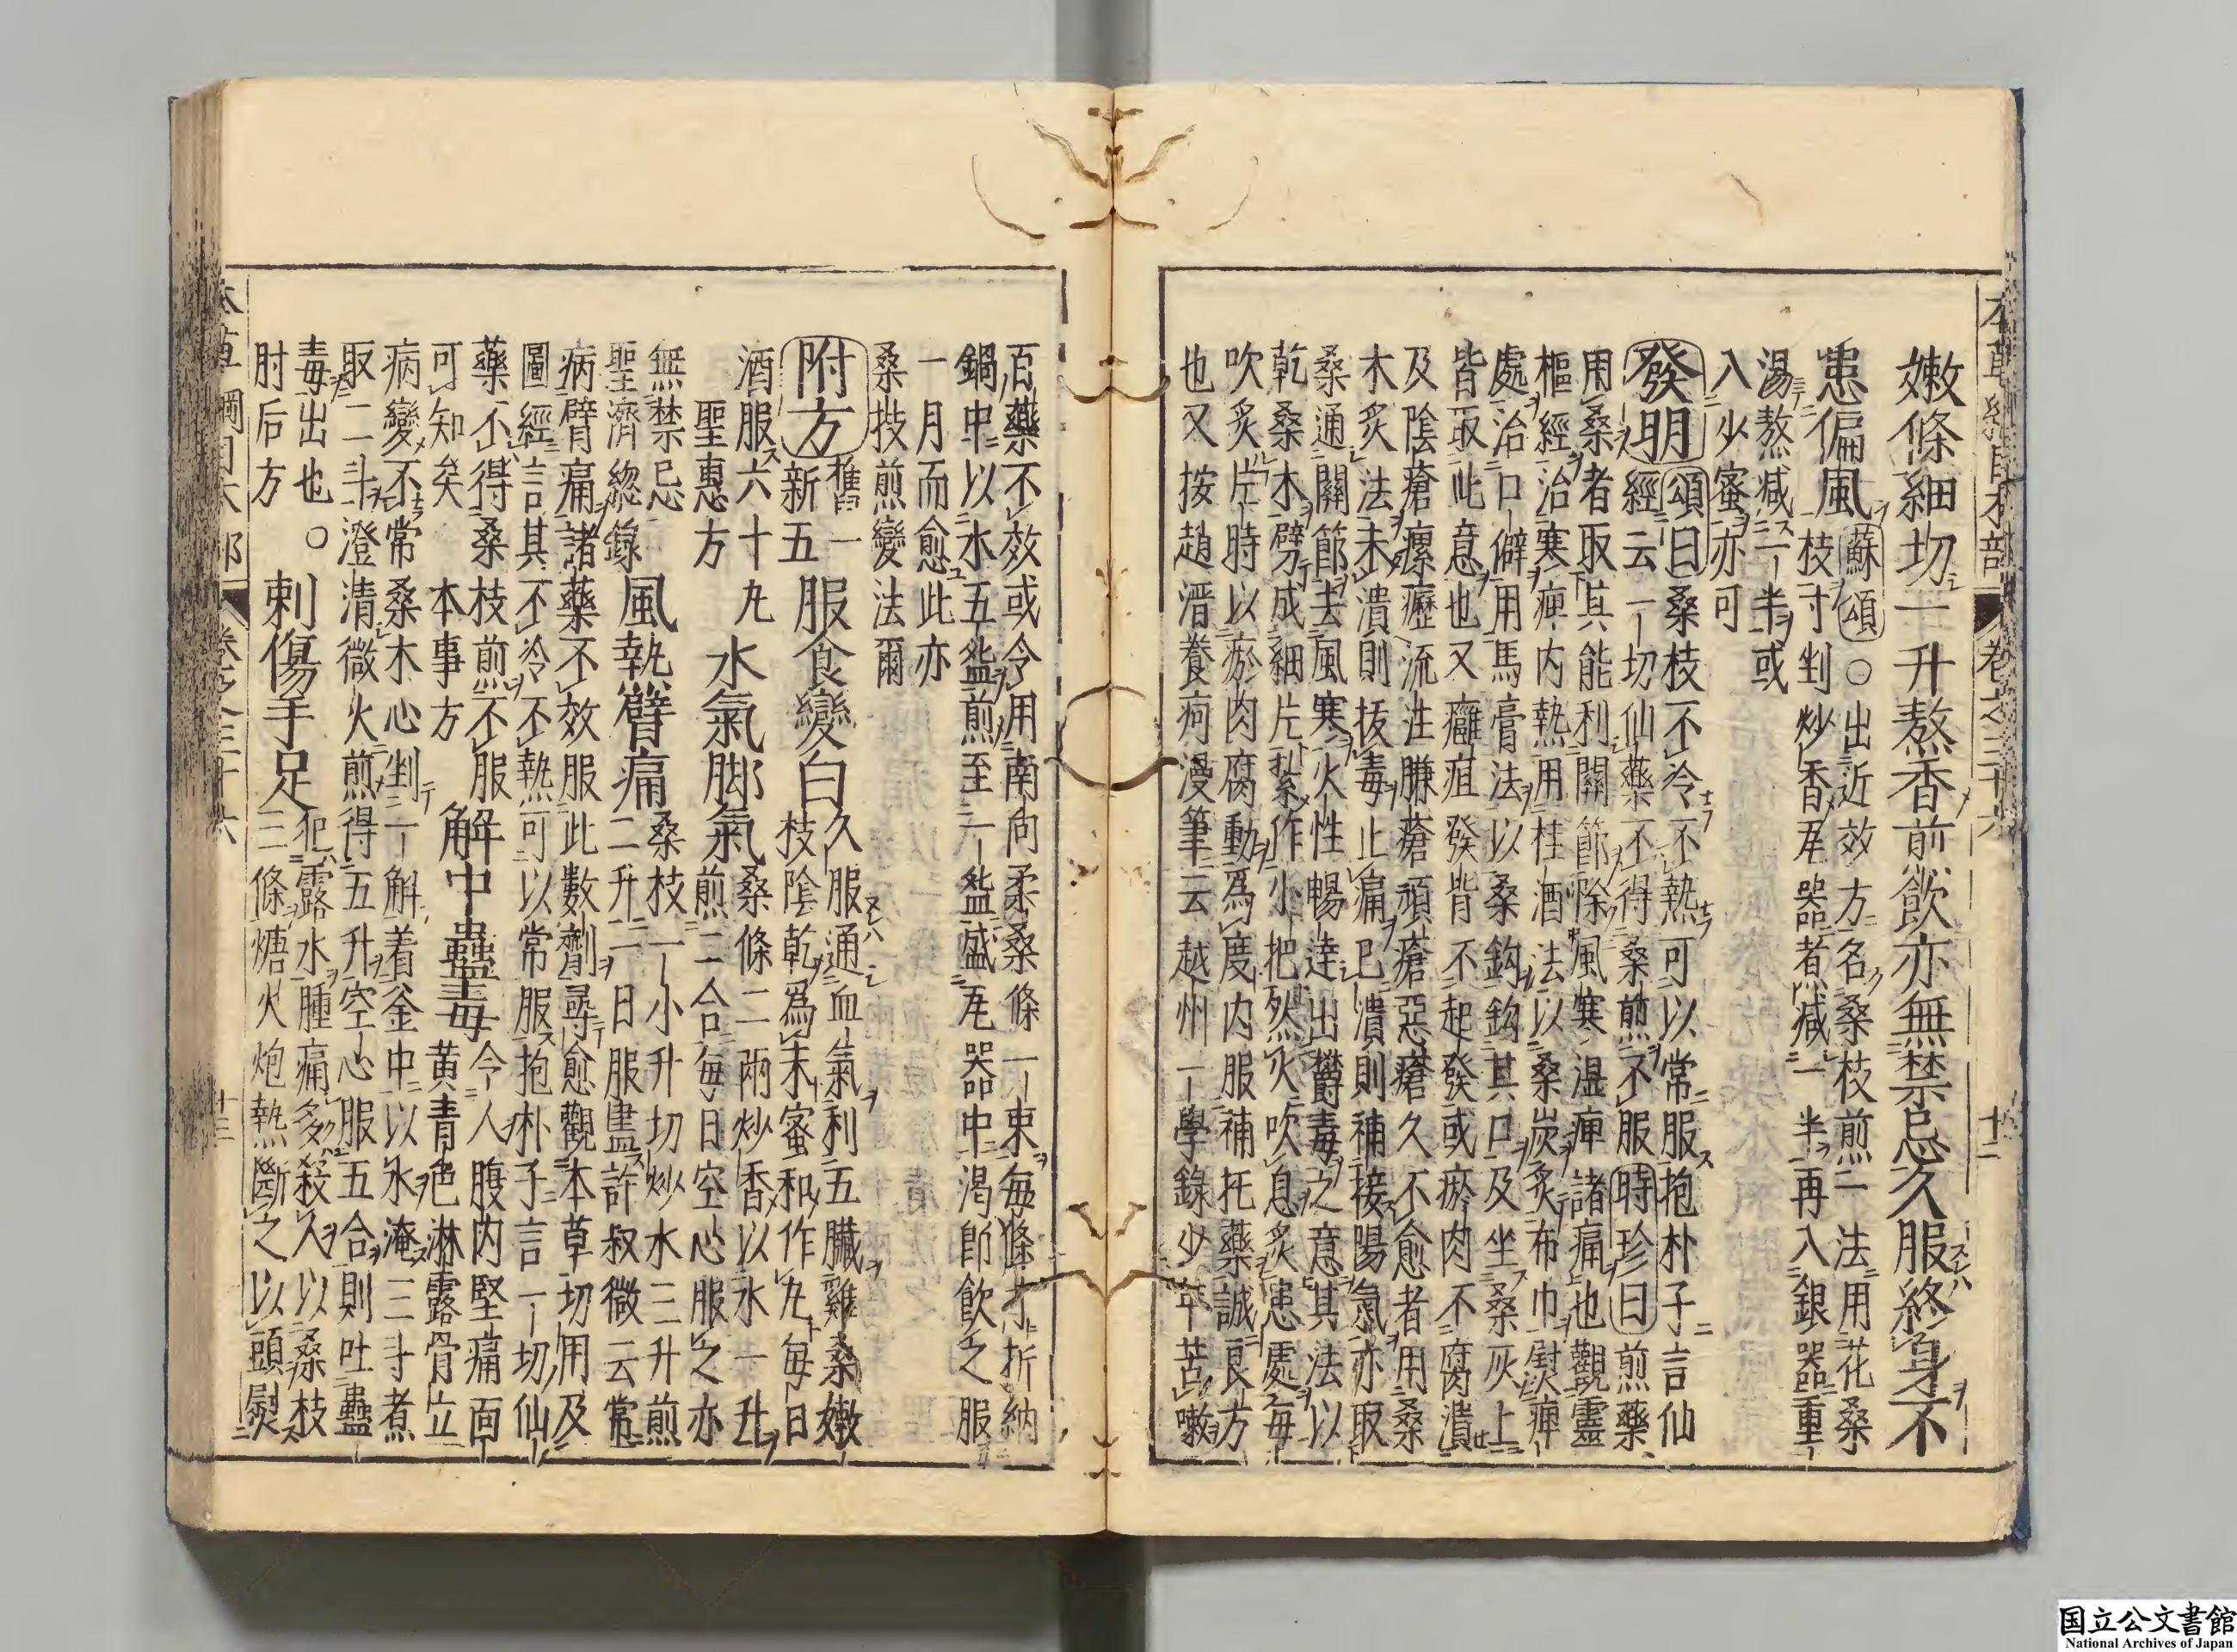 本草綱目木部 卷之三十六 十二
嫩條細切一升熬香煎飲亦無禁忌久服終身不
患偏風蘇頌○出近效方名桑枝煎一法用花桑
枝寸剉炒香瓦器煮減一半再入銀器重
湯熬減一半或
入少蜜亦可
發明頌曰桑枝不冷不熱可以常服抱朴子言仙
經云一切仙藥不得桑煎不服時珍曰煎藥
用桑者取其能利關節除風寒湿痺諸痛也觀靈
樞經治寒痺内熱用桂酒法以桑炭炙布巾慰痺
處治口僻用馬膏法以桑鈎鈎其口及坐桑灰上
皆取此意也又癰疽發背不起發或瘀肉不腐潰
及陰瘡瘰癧流注臁瘡頑瘡惡瘡久不愈者用桑
木炙法未潰則拔毒止痛已潰則補接陽氣亦取
桑通關節去風寒火性暢達出鬱毒之意其法以
乾桑木劈成細片扎緊作小把然火吹息炙患處每
吹炙片時以瘀肉腐動爲度内服補托藥誠良方
也又按趙溍養疴漫筆云越州一學錄少年苦嗽
百藥不效或令用南向柔桑條一束毎條寸折納
鍋中以水五盌煎至一盌盛瓦器中渇卽飲之服
一月而愈此亦
桑技煎變法爾
附方舊一新五 服食變白久服通血氣利五臟雞桑嫩
枝陰乾爲末蜜和作丸毎日
酒服六十丸
聖惠方 水氣脚氣桑條二兩炒香以水一升
煎二合毎日空心服之亦
無禁忌
聖濟緫錄 風熱臂痛桑枝一小升切炒水三升煎
二升一日服盡許叔微云常
病臂痛諸藥不效服此數劑尋愈觀本草切用及
圖經言其不冷不熱可以常服抱朴子言一切仙
藥不得桑枝煎不服
可知矣 本事方 解中蠱毒令人腹内堅痛面
黄青色淋露骨立
病變不常桑木心剉一斛着釜中以水淹三寸煮
取二斗澄清微火煎得五升空心服五合則吐蠱
毒出也○
肘后方 刺傷手足犯露水腫痛多殺人以桑枝
三條煻火炮熱斷之以頭熨
本草綱目木部 卷之三十六 十三
国立公文書館
National Archives of Japan